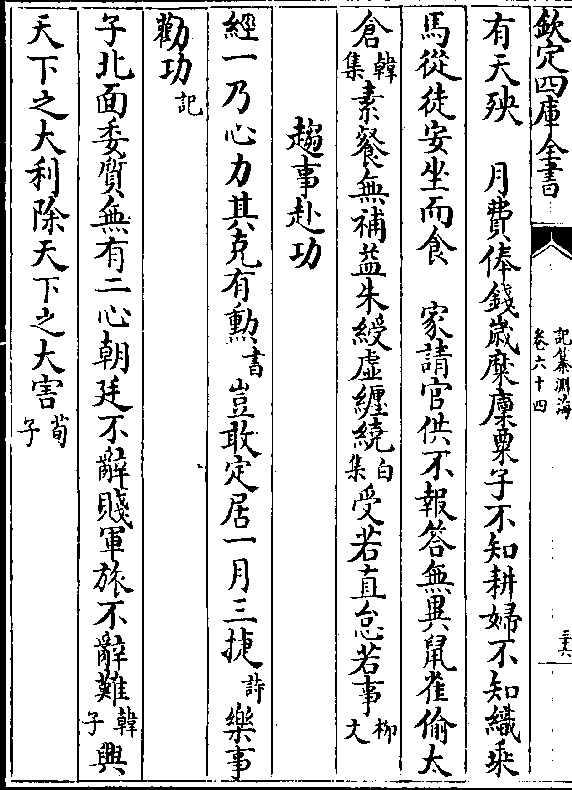 欽定四庫全書
記纂淵海
卷六十四
三十六
有天殃　月費俸錢歲糜廩粟子不知耕婦不知織乘
馬從徒安坐而食　家請官供不報答無異鼠雀偷太
倉韓集素餐無補益朱綬虛纏繞白集受若直怠若事柳文
趨事赴功
經一乃心力其克有勲書豈敢定居一月三捷詩樂事
勸功記
子北面委質無有二心朝廷不辭賤軍旅不辭難韓子興
天下之大利除天下之大害荀子